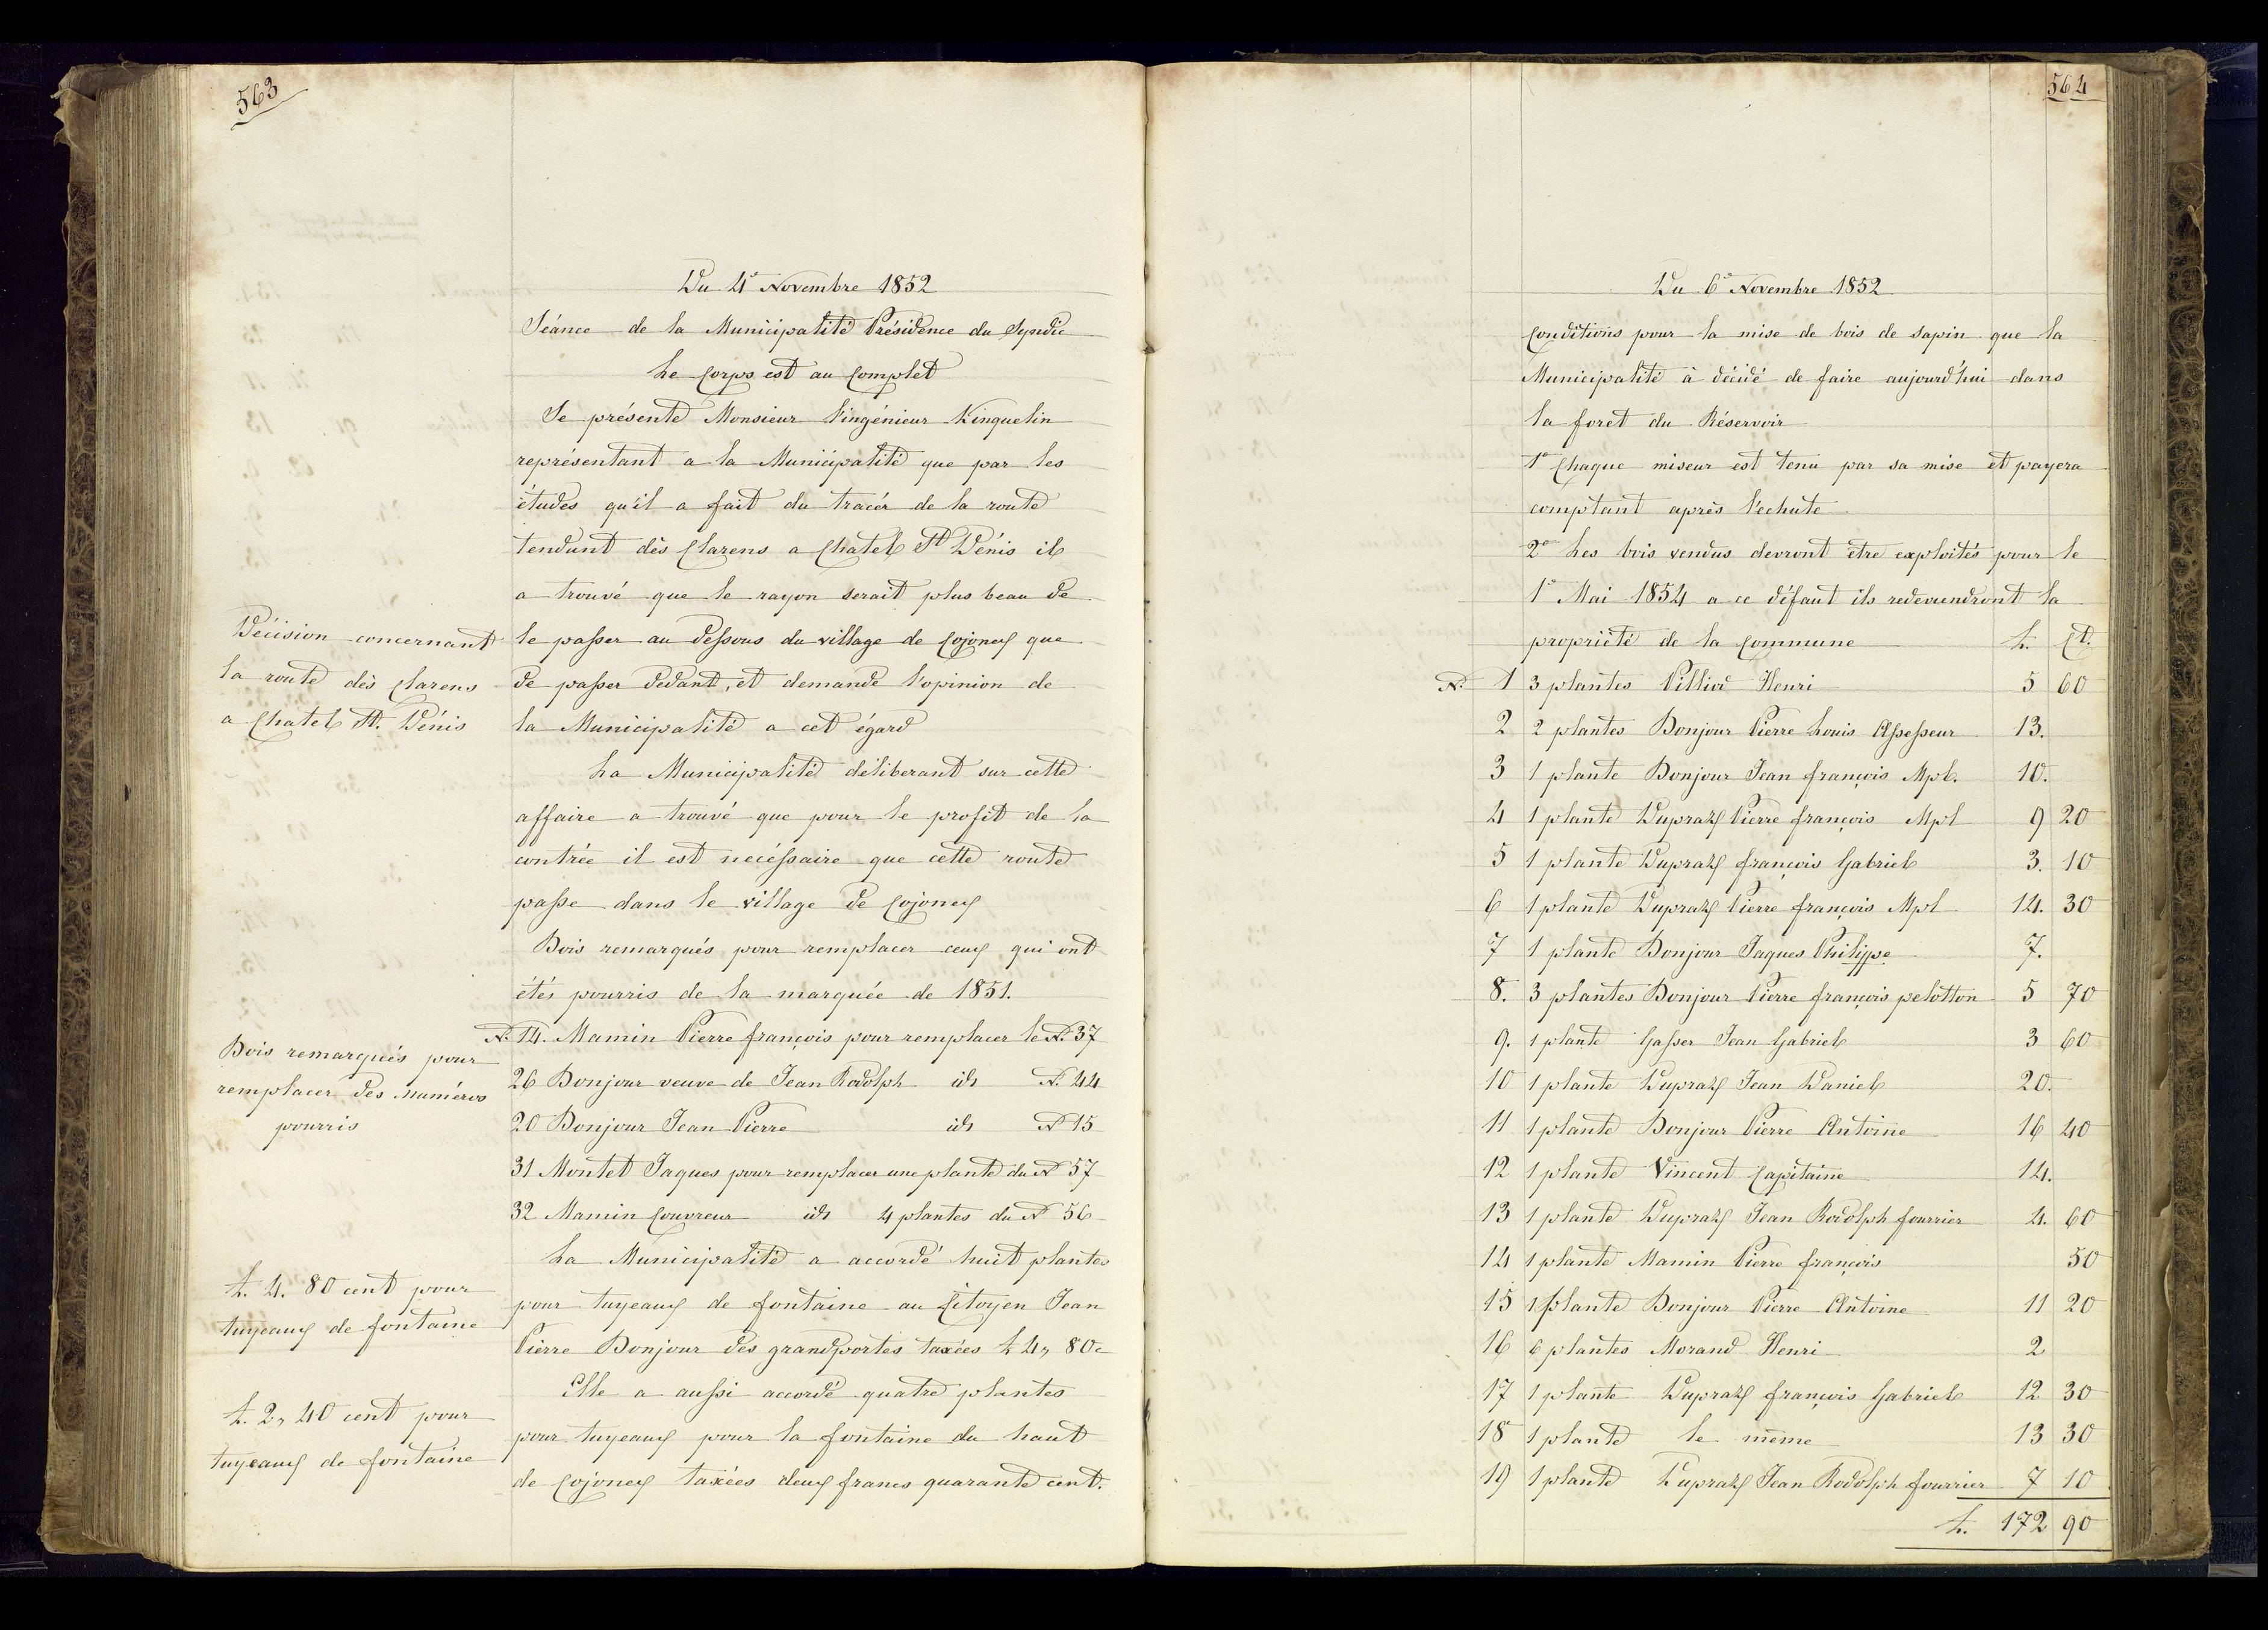 563
Du 4e Novembre 1852
Séance de la Municipalité Présidence du Syndic
Le Corps est au Complet
Se présente Monsieur l'ingénieur Kinquelin
représentant a la Municipalité que par les
études qu'il a fait du tracér de la route
tendant dès Clarens a Chatel St Dénis il
a trouvé que le rayon serait plus beau de
Décision concernant
la route dès Clarens
a Chatel St. Dénis
le passer au dessous du village de Cojonex que
de passer dedant, et demande l'opinion de
la Municipalité a cet égard
La Municipalité déliberant sur cette
affaire a trouvé que pour le profit de la
contrée il est necéssaire que cette route
passe dans le village de Cojonex
Bois remarqués pour remplacer ceux qui ont
étés pourris de la marquée de 1851.
Bois remarqués pour
remplacer des numéros
pourris
N. 14. Mamin Pierre françois pour remplacer le N. 37
26 Bonjour veuve de Jean Rodolph id N. 44
20 Bonjour Jean Pierre id N 15
31 Montet Jaques pour remplacer une plante du N 57
32 Mamin Couvreur id 4 plantes du N 56
La Municipalité a accordé huit plantes
L. 4. 80 cent pour
tuyeaux de fontaine
pour tuyeaux de fontaine au Citoyen Jean
Pierre Bonjour des grandportes taxées L 4, 80 c
Elle a aussi accordé quatre plantes
L. 2, 40 cent pour
tuyeaux de fontaine
pour tuyeaux pour la fontaine du haut
de Cojonex taxées deux francs quarante cent.
564
Du 6e Novembre 1852
Conditions pour la mise de bois de sapin que la
Municipalité à décidé de faire aujourd'hui dans
la foret du Réservoir
1o Chaque miseur est tenu par sa mise et payera
comptant après l'echute
2o Les bois vendus devront être exploités pour le
1er Mai 1854 a ce défaut ils redeviendront la
propriété de la Commune L. Ct.
N. 1 3 plantes Pilliod Henri 5 60
2 2 plantes Bonjour Pierre Louis Assesseur 13.
3 1 plante Bonjour Jean françois Mpl. 10.
4 1 plante Dupraz Pierre françois Mpl 9 20
5 1 plante Dupraz françois Gabriel 3. 10
6 1 plante Dupraz Pierre françois Mpl 14. 30
7 1 plante Bonjour Jaques Philippe 7.
8. 3 plantes Bonjour Pierre françois pelotton 5 70
9. 1 plante Gasser Jean Gabriel 3 60
10 1 plante Dupraz Jean Daniel 20.
11 1 plante Bonjour Pierre Antoine 16 40
12 1 plante Vincent Capitaine 14.
13 1 plante Dupraz Jean Rodolph fourrier 4. 60
14 1 plante Mamin Pierre françois 50
15 1 plante Bonjour Pierre Antoine 11 20
16 6 plantes Morand Henri 2
17 1 plante Dupraz françois Gabriel 12 30
18 1 plante le même 13 30
19 1 plante Dupraz Jean Rodolph fourrier 7 10
L. 172 90